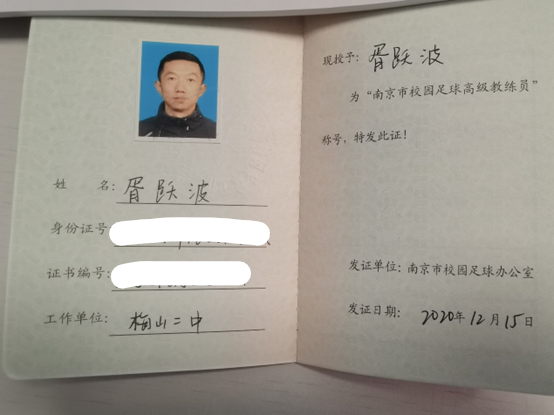 姓 名：胥跃波
身份证号
证书编号：
工作单位：梅山二中
现授予：胥跃波
为“南京市校园足球高级教练员”
称号，特发此证！
发证单位：南京市校园足球办公室
发证日期：2020年12月15日